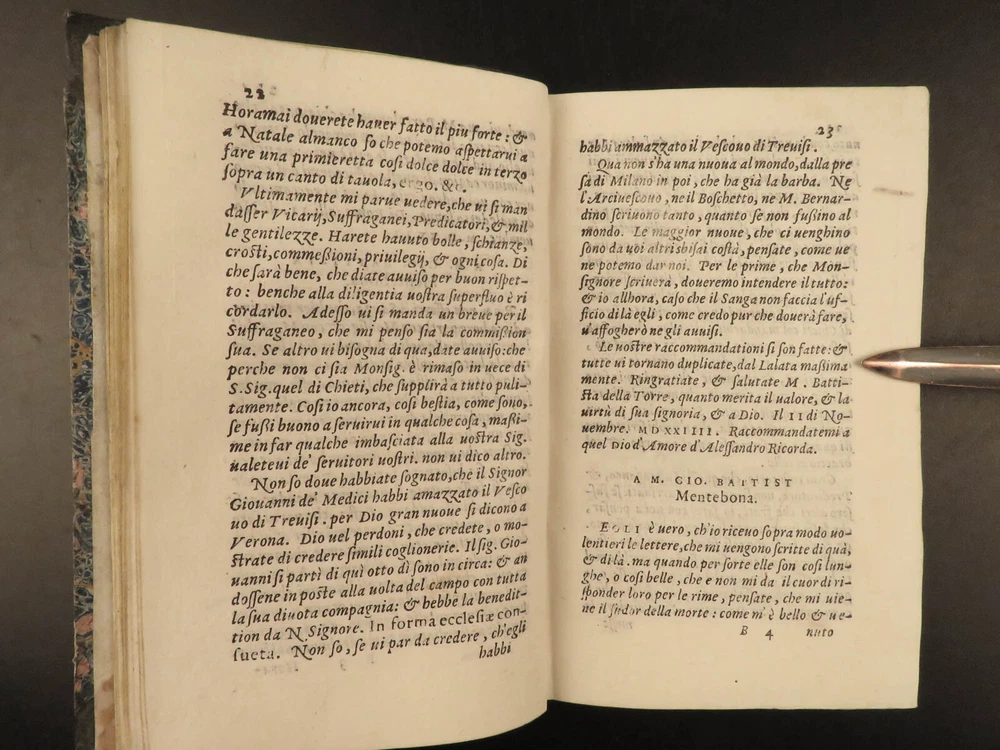 22
Horamai douerete hauer fatto il piu forte: &
a Natale almanco so che potemo aspettarui a
fare una primieretta cosi dolce dolce in terzo
sopra un canto di tauola, ergo. &c.
Vltimamente mi parue uedere, che ui si man
dasser Vicarij, Suffraganei, Predicatori, & mil
le gentilezze. Harete hauuto bolle, schianze,
crosti, commeßioni, priuilegij, & ogni cosa. Di
che sarà bene, che diate auuiso per buon rispet-
to: benche alla diligentia uostra superfluo è ri
cordarlo. Adesso ui si manda un breue per il
Suffraganeo, che mi penso sia la commißion
sua. Se altro ui bisogna di qua, date auuiso: che
perche non ci sia Monsig. è rimaso in uece di
S. Sig. quel di Chieti, che supplirà a tutto puli-
tamente. Cosi io ancora, cosi bestia, come sono,
se fußi buono a seruirui in qualche cosa, maßi-
me in far qualche imbasciata alla uostra Sig.
ualeteui de' seruitori uostri. non ui dico altro.
Non so doue habbiate sognato, che il Signor
Giouanni de' Medici habbi amazzato il Vesco
uo di Treuisi. per Dio gran nuoue si dicono a
Verona. Dio uel perdoni, che credete, o mo-
strate di credere simili coglionerie. Il sig. Gio-
uanni si partì di quì otto dì sono in circa: & an
dossene in poste alla uolta del campo con tutta
la sua diuota compagnia: & bebbe la benedit-
tion da N. Signore. In forma ecclesiæ con-
sueta. Non so, se ui par da credere, ch'egli
habbi
23
habbi ammazzato il Vescouo di Treuisi.
Qua non s'ha una nuoua al mondo, dalla pre
sa di Milano in poi, che ha già la barba. Ne
l'Arciuescouo, ne il Boschetto, ne M. Bernar-
dino scriuono tanto, quanto se non fußino al
mondo. Le maggior nuoue, che ci uenghino
sono da uoi altri sbisai costà, pensate, come ue
ne potemo dar noi. Per le prime, che Mon-
signore scriuerà, doueremo intendere il tutto:
& io allhora, caso che il Sanga non faccia l'uf-
ficio di là egli, come credo pur che douerà fare,
u'affogherò ne gli auuisi.
Le uostre raccommandationi si son fatte: &
tutte ui tornano duplicate, dal Lalata maßima
mente. Ringratiate, & salutate M. Batti-
sta della Torre, quanto merita il ualore, & la
uirtù di sua signoria, & a Dio. Il 11 di No-
uembre. MDXXIIII. Raccommandatemi a
quel Dio d'Amore d'Alessandro Ricorda.
A M. GIO. BATTIST
Mentebona.
EGLI è uero, ch'io riceuo sopra modo uo-
lentieri le lettere, che mi uengono scritte di quà,
& di là. ma quando per sorte elle son cosi lun-
ghe, o cosi belle, che e non mi da il cuor di ri-
sponder loro per le rime, pensate, che mi uie-
ne il sudor della morte: come m'è bello & ue-
B 4 nuto